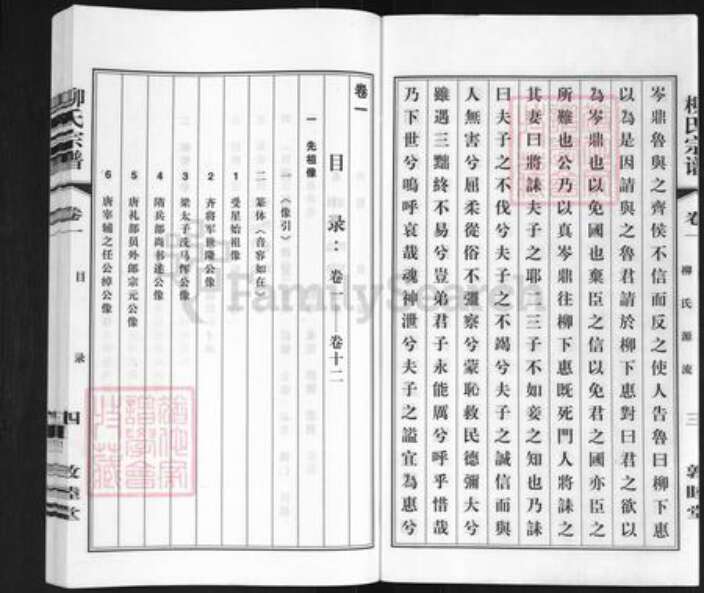 柳氏宗谱
卷一
柳氏源流
三
敦睦堂
岑鼎魯與之齊侯不信而反之使人告魯曰柳下惠
以為是因請與之魯君請於柳下惠對曰君之欲以
為岑鼎也以免國也棄臣之信以免君之國亦臣之
所難也公乃以真岑鼎往柳下惠既死門人將誄之
其妻曰將誄夫子之耶二三子不如妾之知也乃誄
曰夫子之不伐兮夫子之不竭兮夫子之誠信而與
人無害兮屈柔從俗不彊察兮蒙恥救民德彌大兮
雖遇三黜終不易兮豈弟君子永能厲兮呼乎惜哉
乃下世兮嗚呼哀哉魂神泄兮夫子之謚宜為惠兮
目录：卷一——卷十二
卷一
一 先祖像
一 《像引》
二 篆体《音容如在》
1 受星始祖像
2 齐将军世隆公像
3 梁太子洗马恽公像
4 隋兵部尚书述公像
5 唐礼部员外郎宗元公像
6 唐宰辅之任公绰公像
柳氏宗谱
卷一
目录
四
敦睦堂
FamilySearch